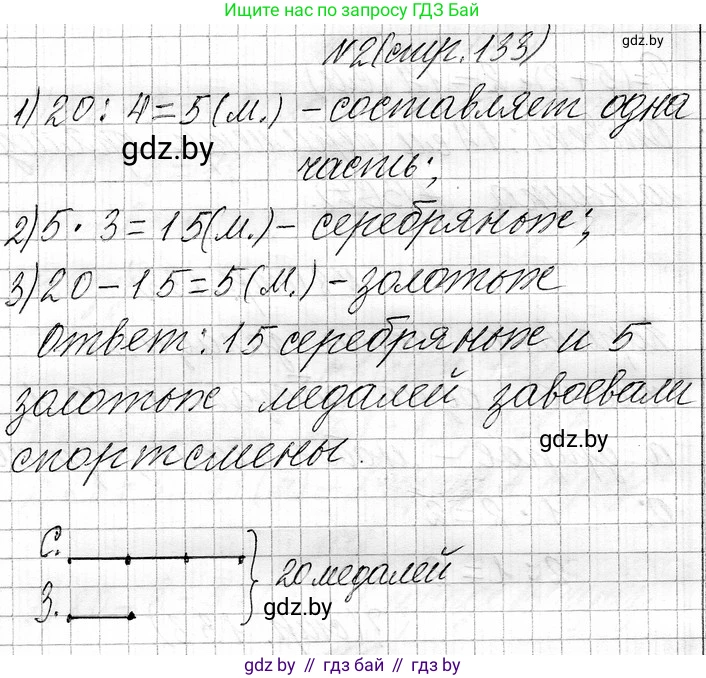 Ищите нас по запросу ГДЗ Бай
№2(стр. 133)
gdz.by
1) 20 : 4 = 5 (м.) – составляет одна
gdz.by
часть;
2) 5 · 3 = 15 (м.) – серебряных;
3) 20 – 15 = 5 (м.) – золотых
Ответ: 15 серебряных и 5
золотых медалей завоевали
gdz.by
спортсмены.
С.
20 медалей
З.
gdz.by
gdz.by // гдз бай // gdz.by